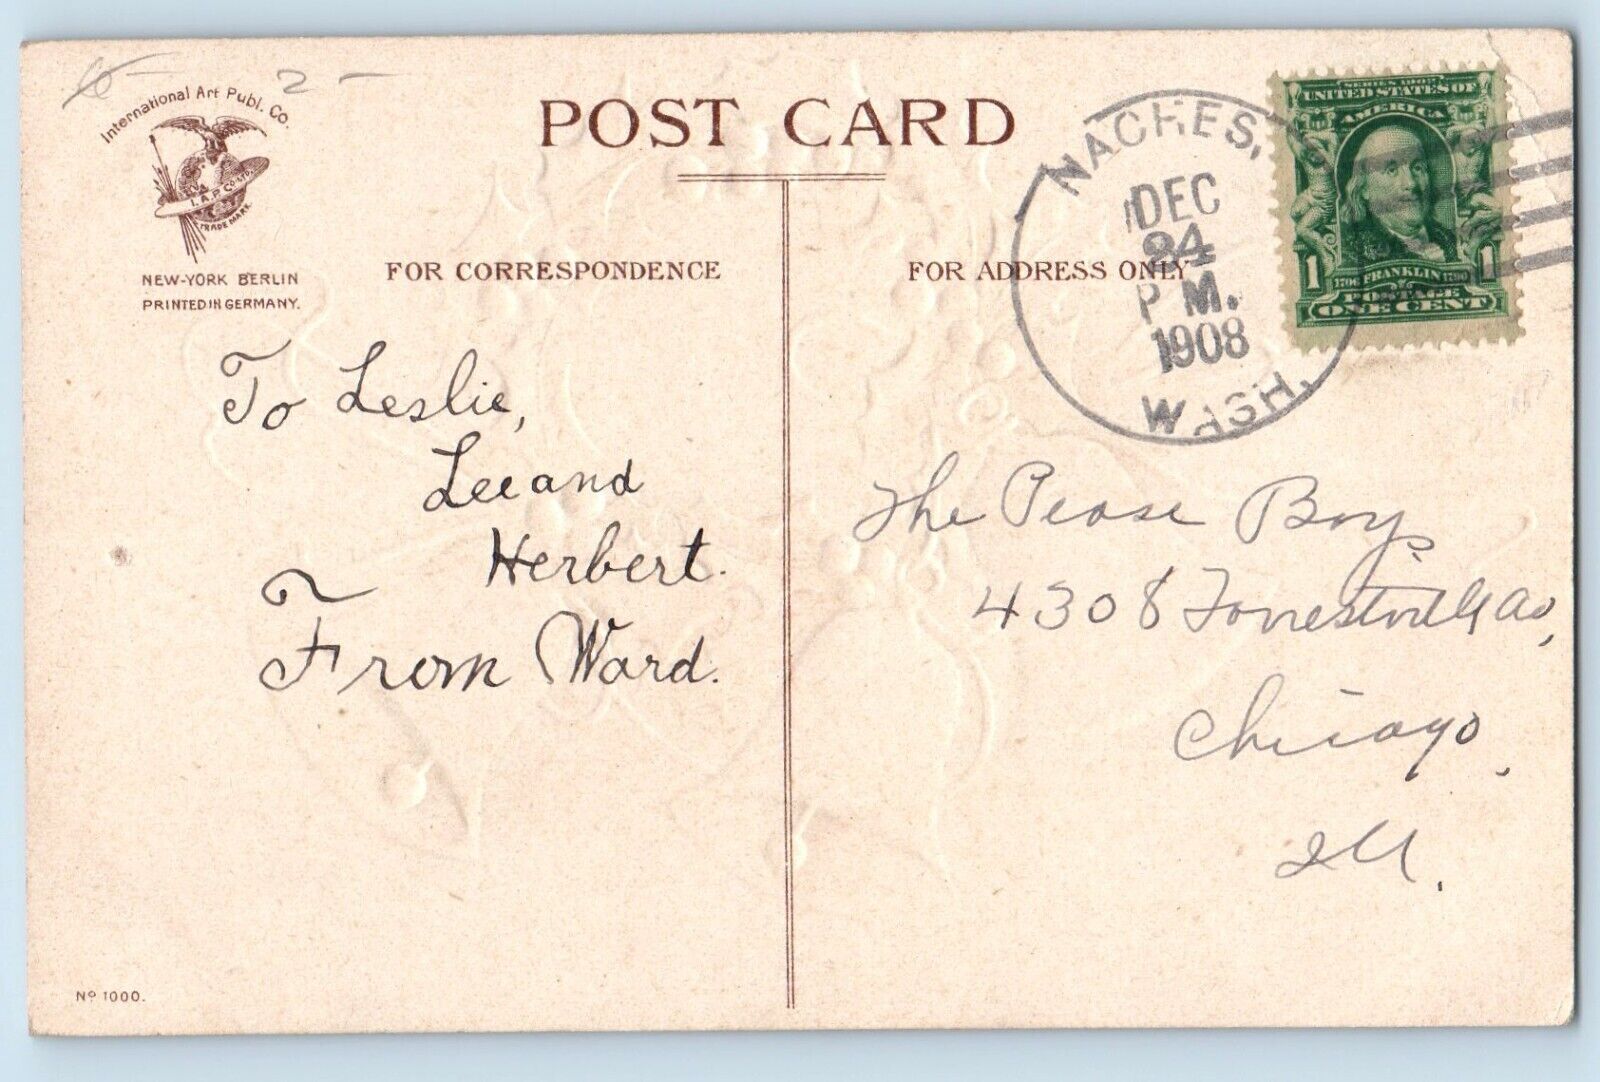 6 - 2 -
International Art Publ. Co.
I. A. P. Co. LTD.
TRADE MARK
NEW-YORK BERLIN
PRINTED IN GERMANY.
POST CARD
FOR CORRESPONDENCE
FOR ADDRESS ONLY
NACHES,
DEC
24
P M.
1908
WASH.
SERIES 1902
UNITED STATES OF
AMERICA
1706 FRANKLIN 1790
1 1
POSTAGE
ONE CENT
To Leslie,
Lee and
Herbert.
From Ward.
The Pease Boys
4308 Forrestville Av,
Chicago,
Ill.
No 1000.